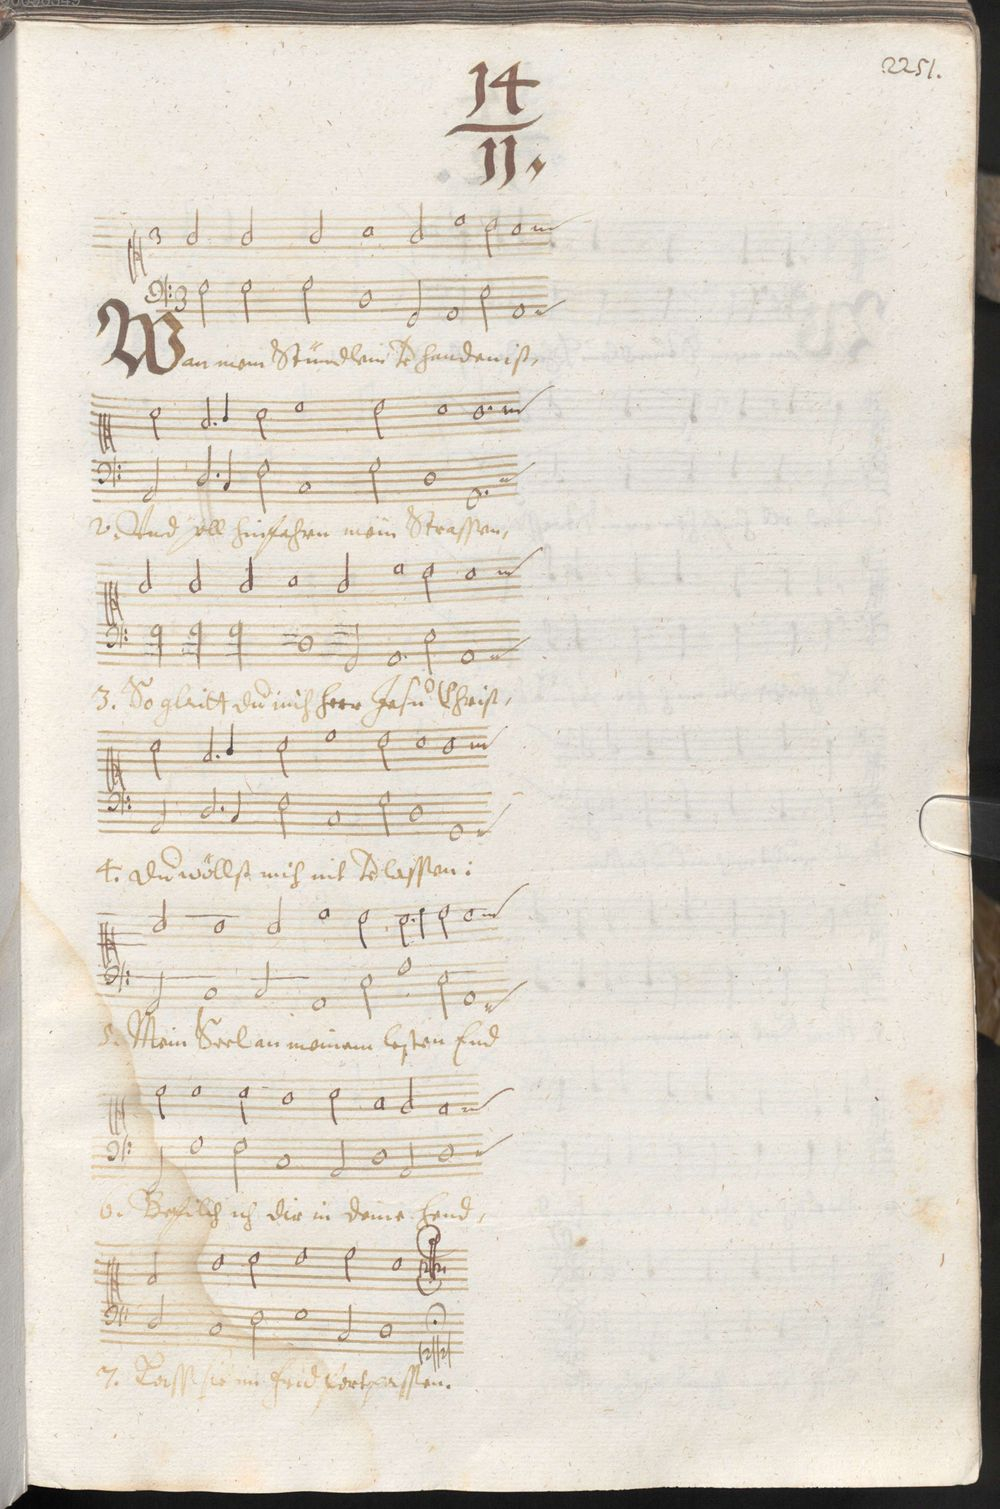 2251.
14
11.
Wan mein Stündlein v̄handen ist,
2. Und soll hinfahren mein Strassen,
3. So gleitt du mich Herr Jesu Christ,
4. Du wöllst mich nit v̄lassen:
5. Mein Seel an meinem lesten End
6. Befilch ich dir in deine Hend,
7. Lass sie im frid